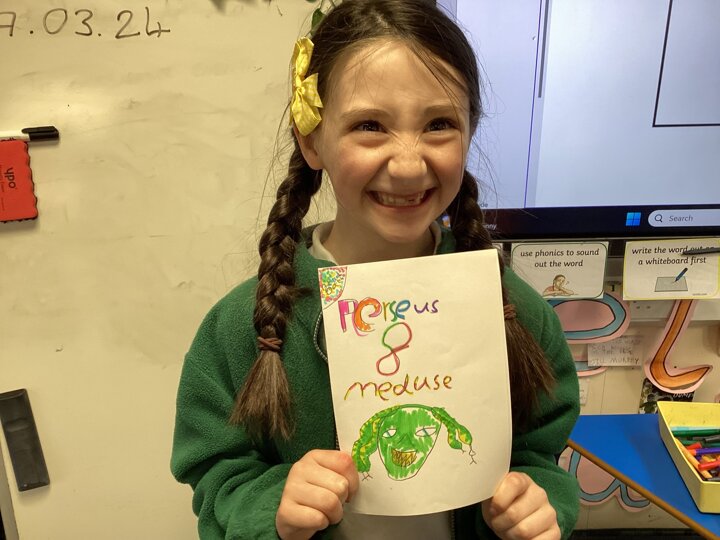 7.03.24
ypo
Perseus
&
meduse
Search
use phonics to sound
out the word
write the word out on
a whiteboard first